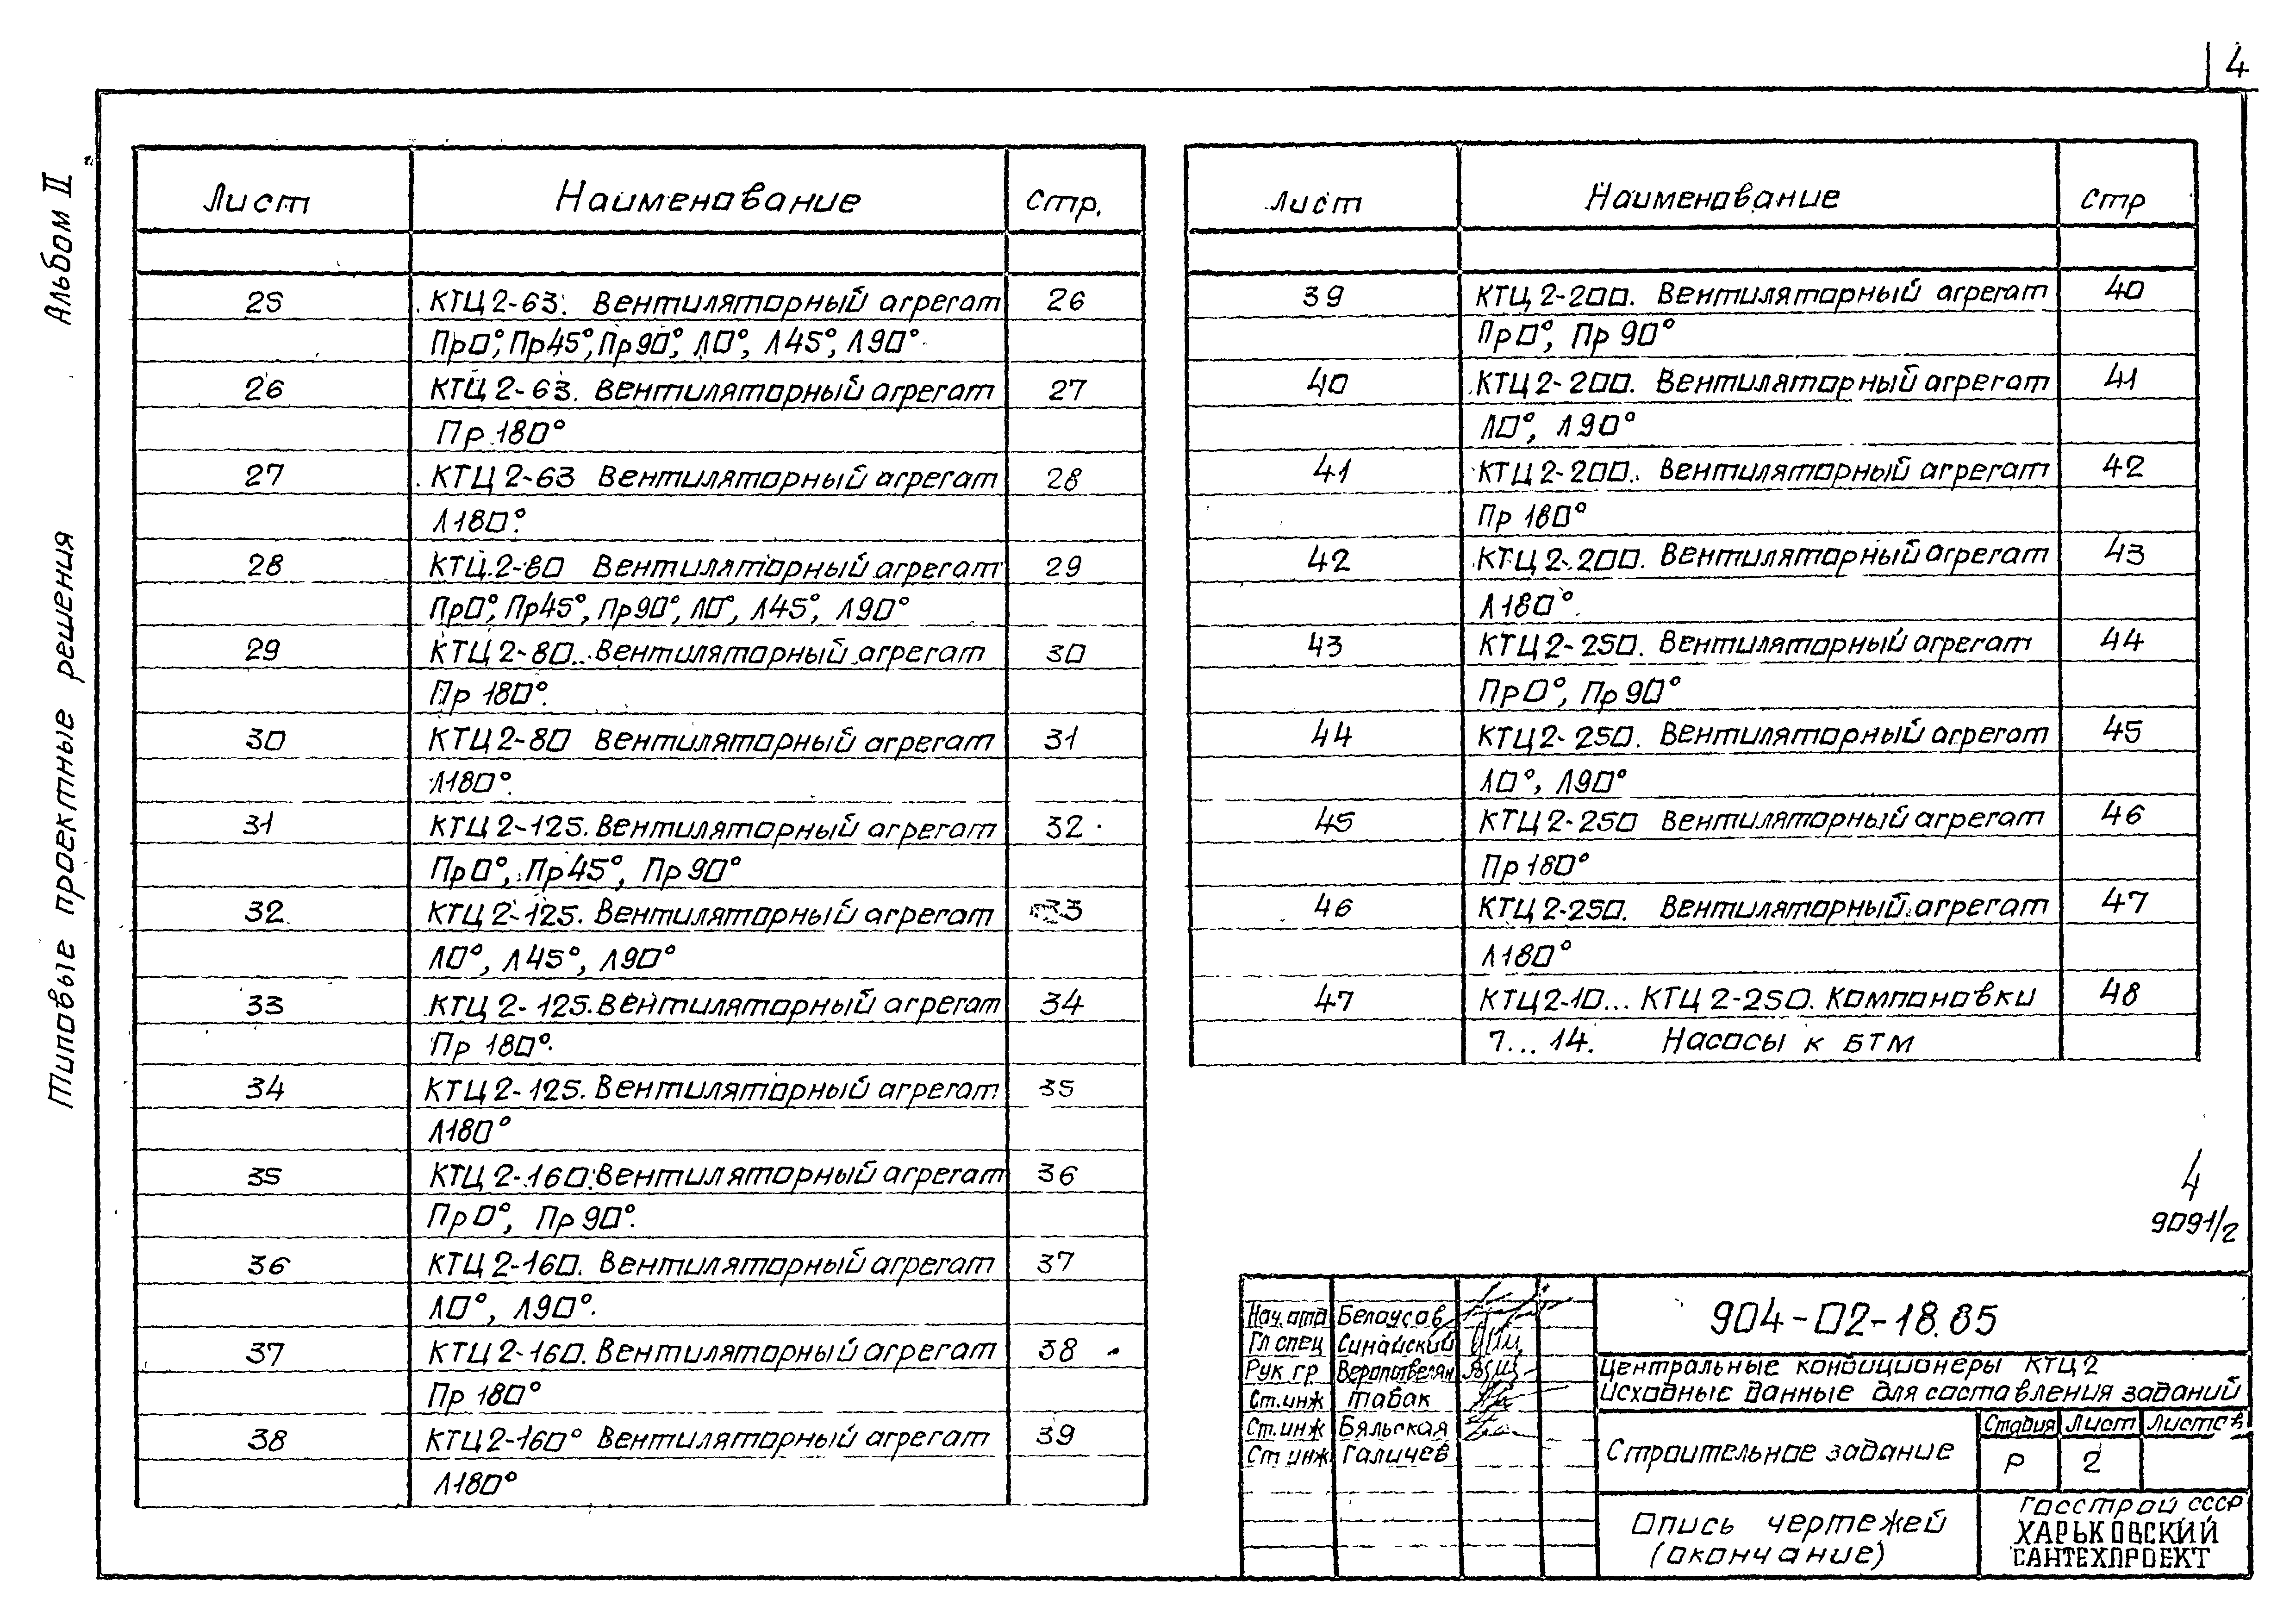 4
Альбом II
Типовые проектные решения
Лист Наименование Стр.
25 КТЦ 2-63. Вентиляторный агрегат 26
Пр0°, Пр45°, Пр90°, Л0°, Л45°, Л90°
26 КТЦ 2-63. Вентиляторный агрегат 27
Пр 180°
27 КТЦ 2-63 Вентиляторный агрегат 28
Л180°.
28 КТЦ.2-80 Вентиляторный агрегат 29
Пр0°, Пр45°, Пр90°, Л0°, Л45°, Л90°
29 КТЦ 2-80. Вентиляторный агрегат 30
Пр 180°.
30 КТЦ 2-80 Вентиляторный агрегат 31
Л180°.
31 КТЦ 2-125. Вентиляторный агрегат 32
Пр0°, Пр45°, Пр90°
32 КТЦ 2-125. Вентиляторный агрегат 33
Л0°, Л45°, Л90°
33 КТЦ 2-125. Вентиляторный агрегат 34
Пр 180°.
34 КТЦ 2-125. Вентиляторный агрегат 35
Л180°
35 КТЦ 2-160. Вентиляторный агрегат 36
Пр0°, Пр90°.
36 КТЦ 2-160. Вентиляторный агрегат 37
Л0°, Л90°.
37 КТЦ 2-160. Вентиляторный агрегат 38
Пр 180°
38 КТЦ2-160° Вентиляторный агрегат 39
Л180°
Лист Наименование Стр
39 КТЦ 2-200. Вентиляторный агрегат 40
Пр0°, Пр 90°
40 КТЦ 2-200. Вентиляторный агрегат 41
Л0°, Л90°
41 КТЦ 2-200. Вентиляторный агрегат 42
Пр 180°
42 КТЦ 2-200. Вентиляторный агрегат 43
Л180°.
43 КТЦ 2-250. Вентиляторный агрегат 44
Пр0°, Пр90°
44 КТЦ2-250. Вентиляторный агрегат 45
Л0°, Л90°
45 КТЦ2-250 Вентиляторный агрегат 46
Пр180°
46 КТЦ2-250. Вентиляторный агрегат 47
Л180°
47 КТЦ2-10... КТЦ 2-250. Компановки 48
7... 14. Насосы к БТМ
4
9091/2
Нач. отд Белоусов
Гл спец Синайский
Рук гр.
Ст.инж Табак
Ст.инж Бяльская
Ст инж Галичев
904-02-18.85
Центральные кондиционеры КТЦ2
Исходные данные для составления заданий
Строительное задание
Стадия Лист Листов
Р 2
Опись чертежей
(окончание)
Госстрой СССР
ХАРЬКОВСКИЙ
САНТЕХПРОЕКТ